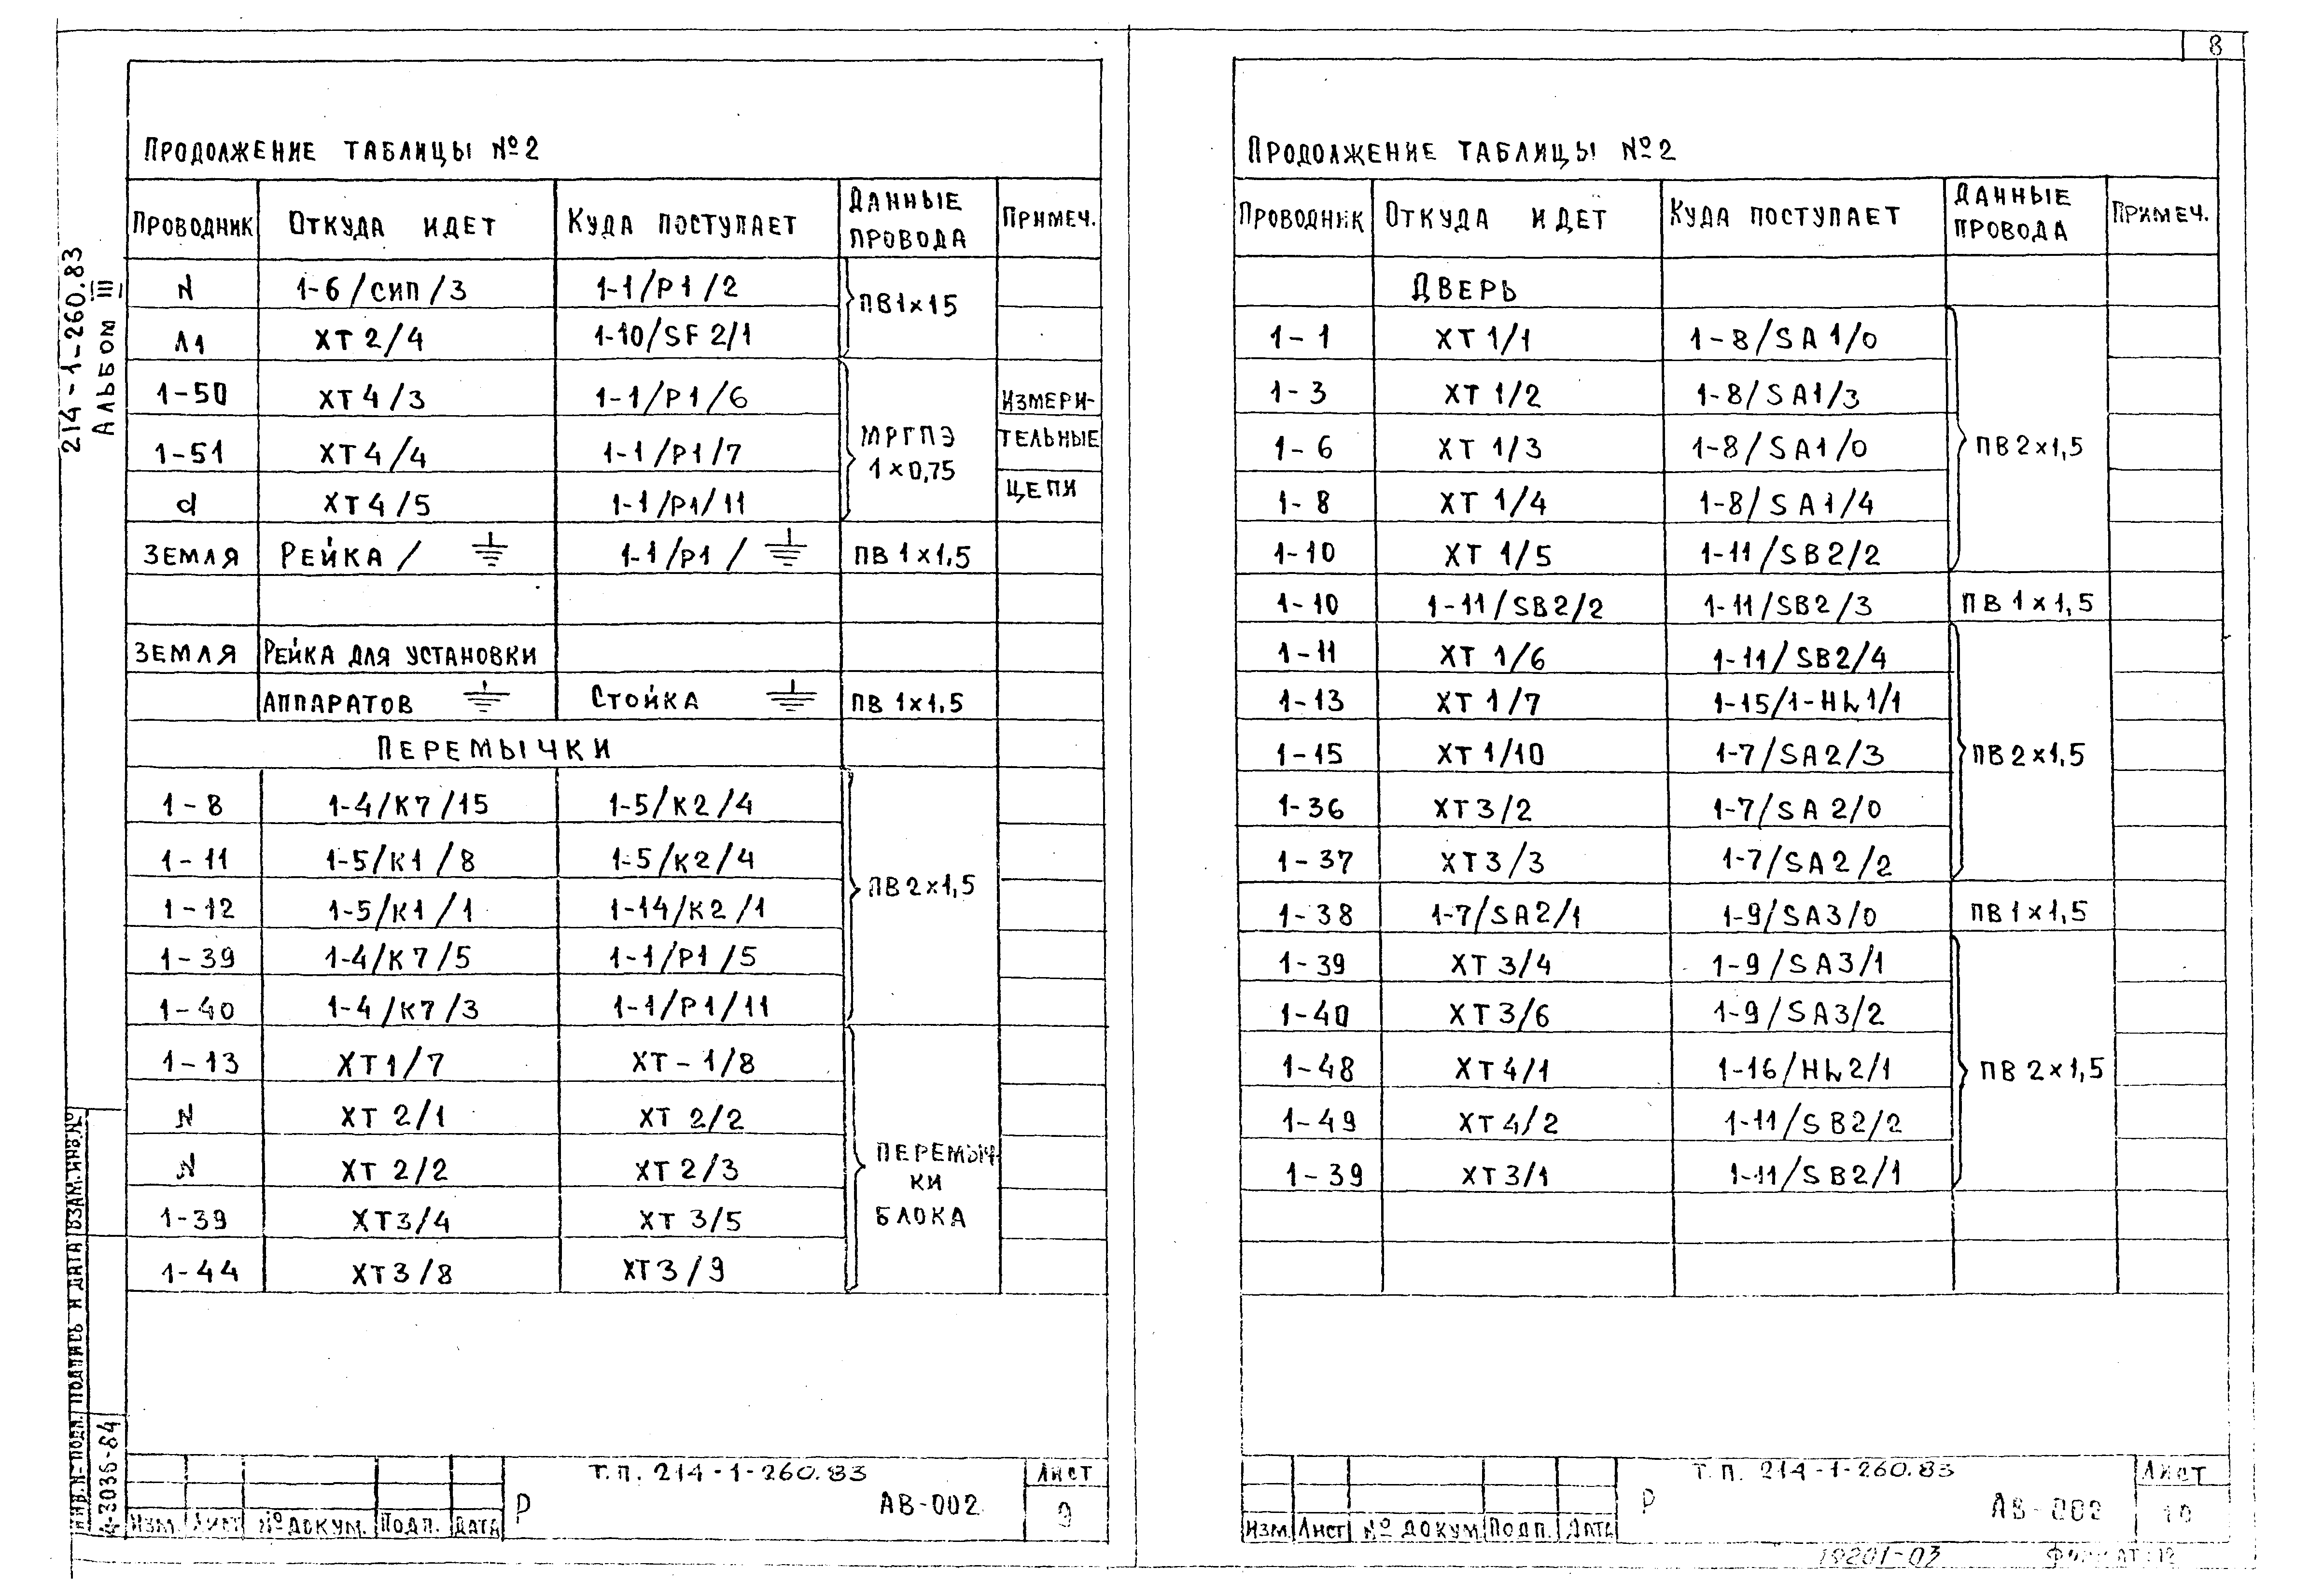 8
214-1-260.83
Альбом III
Продолжение таблицы №2
Проводник | Откуда идет | Куда поступает | Данные провода | Примеч.
N | 1-6/СИП/3 | 1-1/Р1/2 | ПВ1×15
Л1 | ХТ2/4 | 1-10/SF2/1
1-50 | ХТ4/3 | 1-1/Р1/6 | МРГПЭ 1×0,75 | Измерительные цепи
1-51 | ХТ4/4 | 1-1/Р1/7
d | ХТ4/5 | 1-1/Р1/11
Земля | Рейка/ | 1-1/Р1/ | ПВ 1×1,5
Земля | Рейка для установки
аппаратов | Стойка | ПВ 1×1,5
Перемычки
1-8 | 1-4/К7/15 | 1-5/К2/4 | ПВ2×1,5
1-11 | 1-5/К1/8 | 1-5/К2/4
1-12 | 1-5/К1/1 | 1-14/К2/1
1-39 | 1-4/К7/5 | 1-1/Р1/5
1-40 | 1-4/К7/3 | 1-1/Р1/11
1-13 | ХТ1/7 | ХТ-1/8 | Перемычки блока
N | ХТ 2/1 | ХТ 2/2
N | ХТ 2/2 | ХТ 2/3
1-39 | ХТ3/4 | ХТ 3/5
1-44 | ХТ3/8 | ХТ3/9
Инв.№подл. Подпись и дата Взам.инв.№
4-3036-84
Изм. Лист № докум. Подп. Дата
Р
Т.П. 214-1-260.83
АВ-002
Лист
9
Продолжение таблицы №2
Проводник | Откуда идет | Куда поступает | Данные провода | Примеч.
Дверь
1-1 | ХТ 1/1 | 1-8/SA1/0 | ПВ2×1,5
1-3 | ХТ 1/2 | 1-8/SA1/3
1-6 | ХТ 1/3 | 1-8/SA1/0
1-8 | ХТ 1/4 | 1-8/SA1/4
1-10 | ХТ 1/5 | 1-11/SB2/2
1-10 | 1-11/SB2/2 | 1-11/SB2/3 | ПВ 1×1,5
1-11 | ХТ 1/6 | 1-11/SB2/4 | ПВ2×1,5
1-13 | ХТ 1/7 | 1-15/1-HL1/1
1-15 | ХТ 1/10 | 1-7/SA2/3
1-36 | ХТ3/2 | 1-7/SA2/0
1-37 | ХТ3/3 | 1-7/SA2/2
1-38 | 1-7/SA2/1 | 1-9/SA3/0 | ПВ1×1,5
1-39 | ХТ3/4 | 1-9/SA3/1 | ПВ 2×1,5
1-40 | ХТ3/6 | 1-9/SA3/2
1-48 | ХТ4/1 | 1-16/HL2/1
1-49 | ХТ4/2 | 1-11/SB2/2
1-39 | ХТ3/1 | 1-11/SB2/1
Изм. Лист № докум. Подп. Дата
Р
Т.П. 214-1-260.83
АВ-002
Лист
10
19201-03
Формат 12